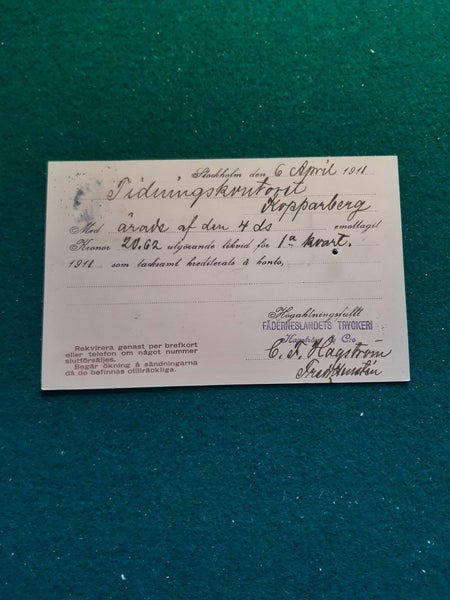 Stockholm den 6 April 1911
Tidningskontoret
Kopparberg
Med ärade af den 4 ds emottagit
Kronor 20.62 utgörande likvid för 1a kvart.
1911 som tacksamt krediterats à konto,
Högaktningsfullt
FÄDERNESLANDETS TRYCKERI
& Co
C. F. Hagström
Rekvirera genast per brefkort
eller telefon om något nummer
slutförsäljes.
Begär ökning å sändningarna
då de befinnas otillräckliga.